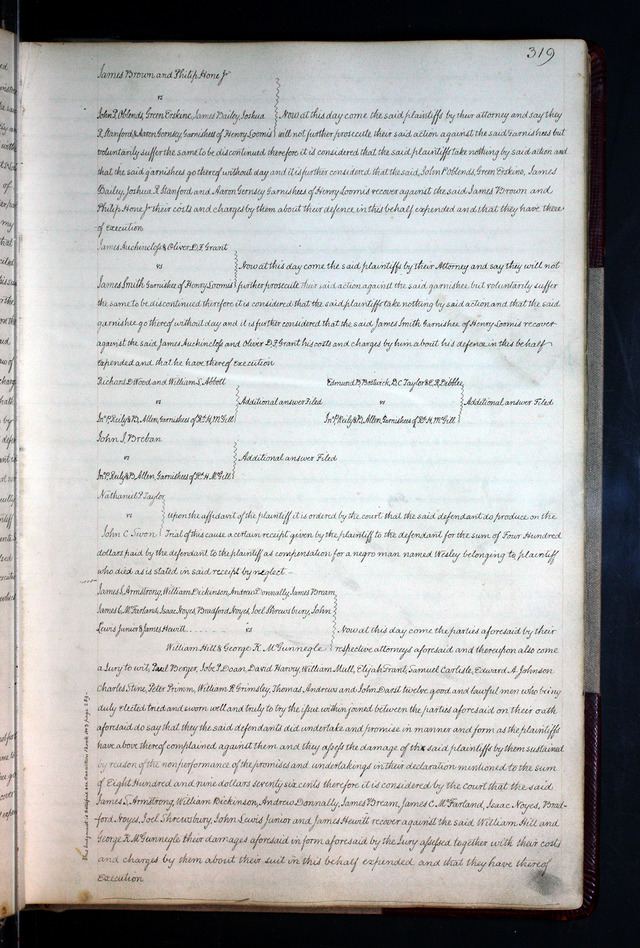 319
James Brown and Philip Hone Jr
vs
John P. Oblends, Green Erskine, James Dailey, Joshua
R. Stanford & Aaron Gernsey Garnishees of Henry Loomis
Now at this day come the said plaintiffs by their attorney and say they
will not further prosecute their said action against the said Garnishees but
voluntarily suffer the same to be discontinued therefore it is considered that the said plaintiffs take nothing by said action and
that the said garnishees go thereof without day and it is further considered that the said, John P. Oblends, Green Erskine, James
Dailey, Joshua R. Stanford and Aaron Gernsey Garnishees of Henry Loomis recover against the said James Brown and
Philip Hone Jr their costs and charges by them about their defence in this behalf expended and that they have there
of execution
James Auchincloss & Oliver D. F. Grant
vs
James Smith Garnishee of Henry Loomis
Now at this day come the said plaintiffs by their Attorney and say they will not
further prosecute their said action against the said garnishee but voluntarily suffer
the same to be discontinued therefore it is considered that the said plaintiffs take nothing by said action and that the said
garnishee go thereof without day and it is further considered that the said James Smith Garnishee of Henry Loomis recover
against the said James Auchincloss and Oliver D. F. Grant his costs and charges by him about his defence in this behalf
expended and that he have thereof execution
Richard D Wood and William S. Abbott
vs
Jno P. Reily & B. Allen, Garnishees of Wm H. McGill
Additional answer Filed
Edmund B. Bostwick, B. C. Taylor & E. R. Pebbles
vs
Jno P. Reily & B. Allen, Garnishees of Wm H. McGill
Additional answer Filed
John J Breban
vs
Jno P. Reily & B. Allen, Garnishees of Wm H. McGill
Additional answer Filed
Nathaniel P. Taylor
vs
John C. Swon
upon the affidavit of the plaintiff it is ordered by the court that the said defendant do produce on the
Trial of this cause a certain receipt given by the plaintiff to the defendant for the sum of Four Hundred
dollars paid by the defendant to the plaintiff as compensation for a negro man named Wesley belonging to plaintiff
who died as is stated in said receipt by neglect.
James S. Armstrong, William Dickinson, Andrew Donnally, James Bream,
James C. McFarland, Isaac Noyes, Bradford Noyes, Joel Shrewsbury, John
Lewis Junior & James Hewitt
vs
William Hill & George K. McGunnegle
Now at this day come the parties aforesaid by their
respective attorneys aforesaid and thereupon also come
a Jury to wit, Paul Berger, Jobe P. Doan, David Harvy, William Mull, Elijah Grant, Samuel Carlisle, Edward A. Johnson
Charles Stine, Peter Primm, William R. Grimsley, Thomas Andrews and John Darst twelve good and lawful men who being
duly elected tried and sworn well and truly to try the issue within joined between the parties aforesaid on their oath
aforesaid do say that they the said defendants did undertake and promise in manner and form as the plaintiffs
have above thereof complained against them and they assess the damage of the said plaintiffs by them sustained
by reason of the nonperformance of the promises and undertakings in their declaration mentioned to the sum
of Eight Hundred and nine dollars seventy six cents therefore it is considered by the court that the said
James S. Armstrong, William Dickinson, Andrew Donnally, James Bream, James C. McFarland, Isaac Noyes, Brad-
ford Noyes, Joel Shrewsbury, John Lewis Junior and James Hewitt recover against the said William Hill and
George K. McGunnegle their damages aforesaid in form aforesaid by the Jury assessed together with their costs
and charges by them about their suit in this behalf expended and that they have thereof
Execution